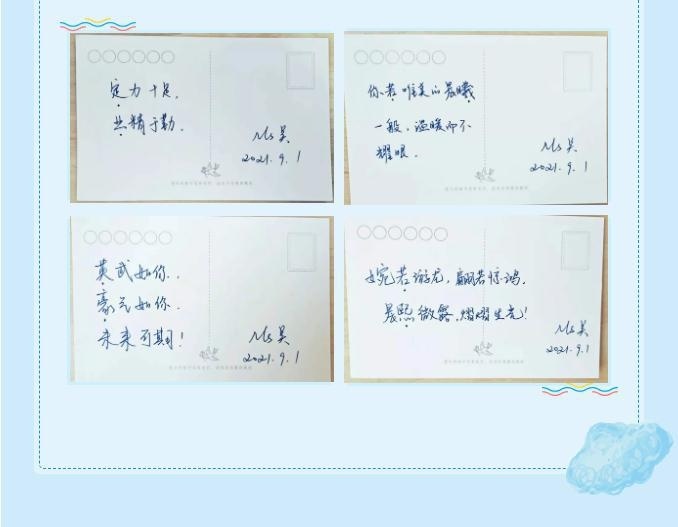 定力十足,
业精于勤.
Ms吴
2021.9.1
你若唯美的晨曦
一般,温暖而不
耀眼.
Ms吴
2021.9.1
英武如你..
豪气如你..
未来可期!
Ms吴
2021.9.1
婉若游龙,翩若惊鸿,
晨熙微露,熠熠生光!
Ms吴
2021.9.1